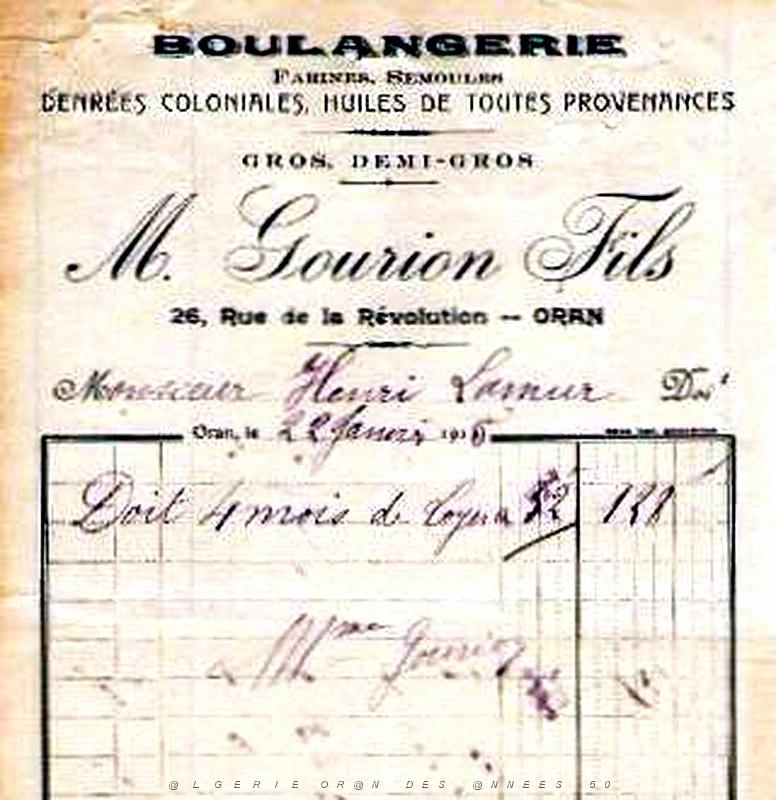 BOULANGERIE
FARINES, SEMOULES
DENRÉES COLONIALES, HUILES DE TOUTES PROVENANCES
GROS, DEMI-GROS
M. Gourion Fils
26, Rue de la Révolution -- ORAN
Monsieur Henri Lamur Doit
Oran, le 22 Janvier 191
Doit 4 mois de Loyer a 32
Mme Gourion
@LGERIE OR@N DES @NNEES 50